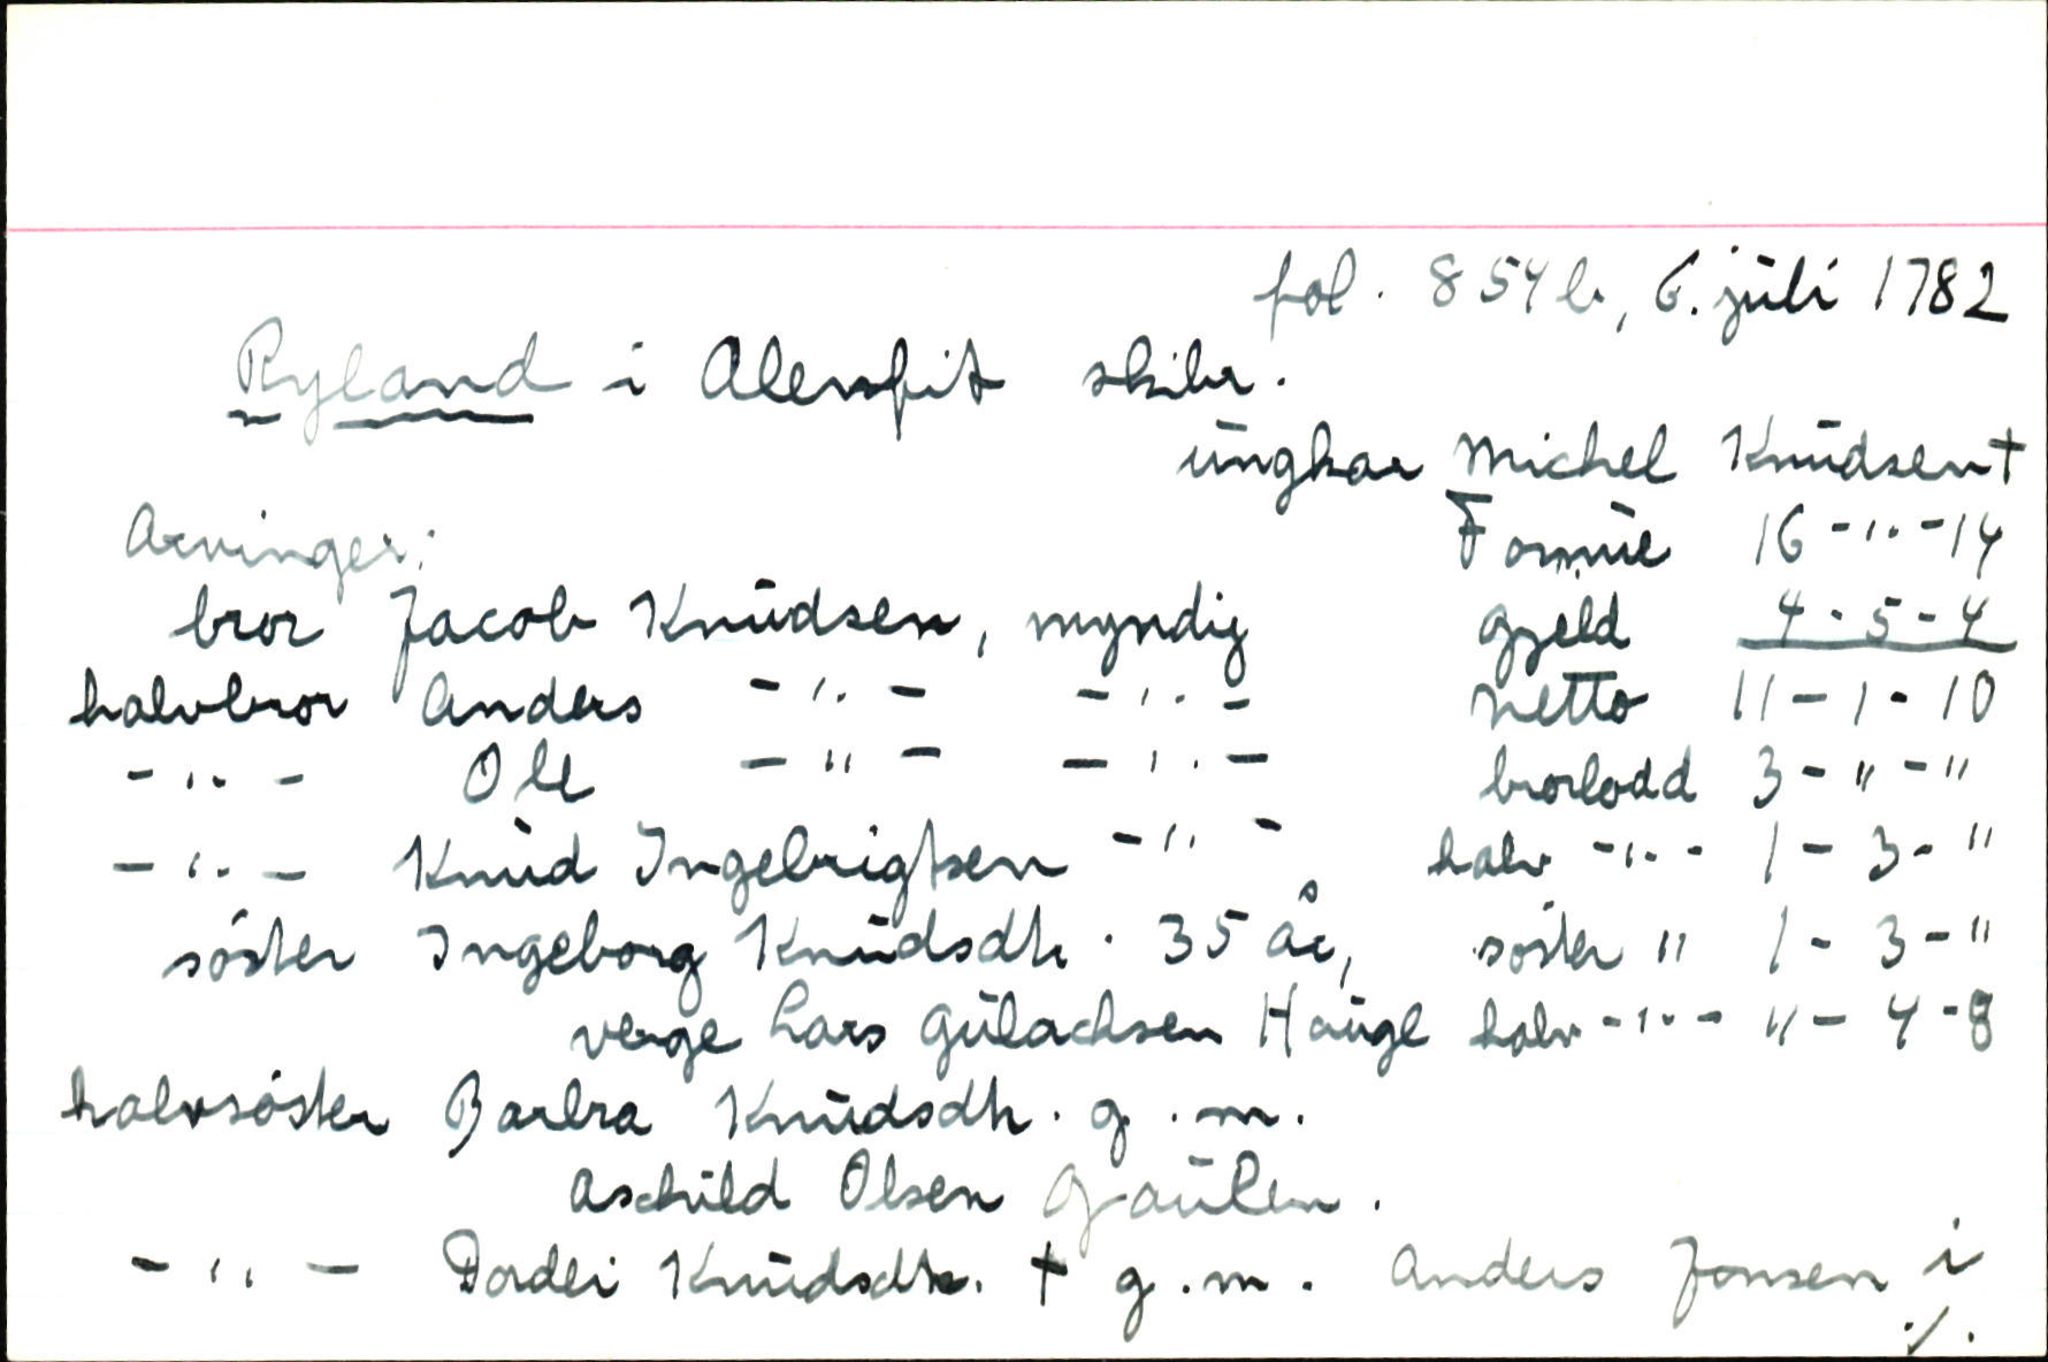 fol. 854b, 6. juli 1782
Ryland i Alenfit skibr.
ungkar Michel Knudsen †
Arvinger: Formue 16 - " - 14
bror Jacob Knudsen, myndig Gjeld 4 - 5 - 4
halvbror Anders - " - - " - Netto 11 - 1 - 10
- " - Ole - " - - " - brorlodd 3 - " - "
- " - Knud Ingebrigtsen - " - halv - " - 1 - 3 - "
söster Ingeborg Knudsdtr. 35 år, söster " 1 - 3 - "
verge Lars Gulachsen Hauge halv - " - " - 4 - 8
halvsöster Barbra Knudsdtr. g. m.
Aschild Olsen Gaulen.
- " - Dordei Knudsdtr. † g. m. Anders Jonsen i
./.